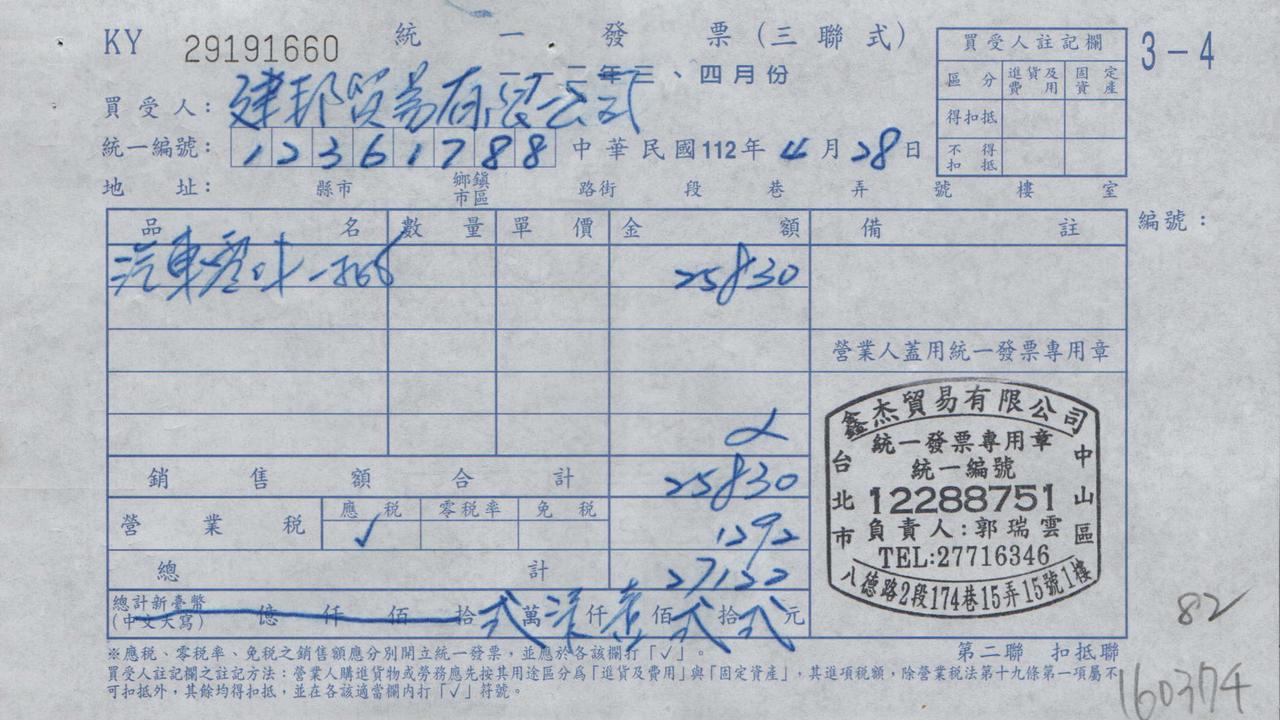 KY 29191660 統一發票(三聯式) 3-4
一一二年三、四月份
買受人：建邦貿易有限公司
統一編號：12361788 中華民國112年4月28日
地址： 縣市 鄉鎮市區 路街 段 巷 弄 號 樓 室
買受人註記欄
區分 進貨及費用 固定資產
得扣抵
不得扣抵
品名 數量 單價 金額 備註 編號：
汽車零件一批 25830
營業人蓋用統一發票專用章
銷售額合計 25830
營業稅 應稅 ✓ 零稅率 免稅 1292
總計 27122
總計新臺幣(中文大寫) 億 仟 佰 拾貳萬柒仟壹佰貳拾貳元
鑫杰貿易有限公司
統一發票專用章
統一編號
12288751
負責人:郭瑞雲
TEL:27716346
台北市 中山區
八德路2段174巷15弄15號1樓
82
※應稅、零稅率、免稅之銷售額應分別開立統一發票，並應於各該欄打「✓」。
第二聯 扣抵聯
買受人註記欄之註記方法：營業人購進貨物或勞務應先按其用途區分為「進貨及費用」與「固定資產」，其進項稅額，除營業稅法第十九條第一項屬不
可扣抵外，其餘均得扣抵，並在各該適當欄內打「✓」符號。
160374